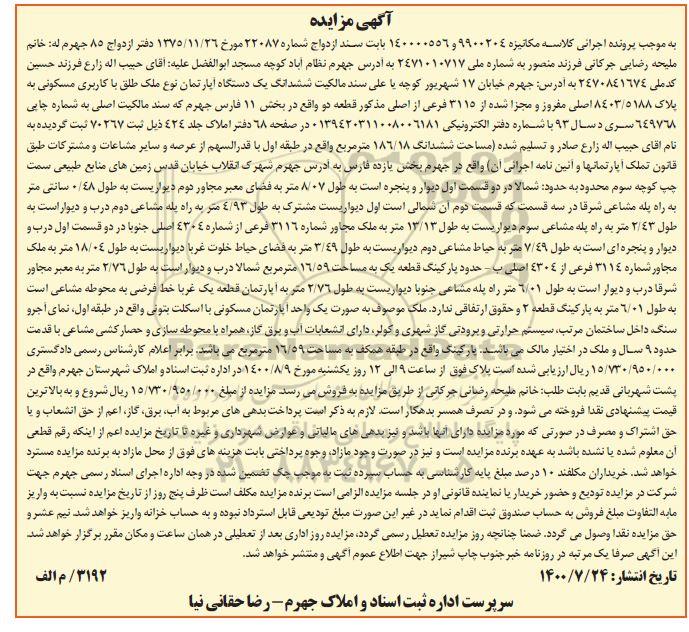 آگهی مزایده
به موجب پرونده اجرائی کلاسه مکانیزه ۹۹۰۰۲۰۴ و ۱۴۰۰۰۰۵۵۶ بابت سند ازدواج شماره ۲۲۰۸۷ مورخ ۱۳۷۵/۱۱/۲۶ دفتر ازدواج ۸۵ جهرم له: خانم
ملیحه رضایی جرکانی فرزند منصور به شماره ملی ۲۴۷۱۰۱۰۷۱۷ به آدرس جهرم نظام آباد کوچه مسجد ابوالفضل علیه: آقای حبیب اله زارع فرزند حسین
کدملی ۲۴۷۰۸۴۱۶۷۴ به آدرس: جهرم خیابان ۱۷ شهریور کوچه یا علی سند مالکیت ششدانگ یک دستگاه آپارتمان نوع ملک طلق با کاربری مسکونی به
پلاک ۸۴۰۳/۵۱۸۸ اصلی مفروز و مجزا شده از ۳۱۱۵ فرعی از اصلی مذکور قطعه دو واقع در بخش ۱۱ فارس جهرم که سند مالکیت اصلی به شماره چاپی
۶۴۹۷۶۸ سری د سال ۹۳ با شماره دفتر الکترونیکی ۰۱۳۹۴۲۰۳۱۱۰۰۸۰۰۶۱۸۱ در صفحه ۶۸ دفتر املاک جلد ۴۲۴ ذیل ثبت ۷۰۲۶۷ ثبت گردیده به
نام آقای حبیب اله زارع صادر و تسلیم شده (مساحت ششدانگ ۱۸۶/۱۸ مترمربع واقع در طبقه اول با قدرالسهم از عرصه و سایر مشاعات و مشترکات طبق
قانون تملک آپارتمانها و آئین نامه اجرائی آن) واقع در جهرم بخش یازده فارس به آدرس جهرم شهرک انقلاب خیابان قدس زمین های منابع طبیعی سمت
چپ کوچه سوم محدود به حدود: شمالا در دو قسمت اول دیوار و پنجره است به طول ۸/۰۷ متر به فضای معبر مجاور دوم دیواریست به طول ۰/۴۸ سانتی متر
به راه پله مشاعی شرقا در سه قسمت که قسمت دوم آن شمالی است اول دیواریست مشترک به طول ۴/۹۳ متر به راه پله مشاعی دوم درب و دیوار است به
طول ۲/۴۳ متر به راه پله مشاعی سوم دیواریست به طول ۱۳/۱۳ متر به ملک مجاور شماره ۳۱۱۶ فرعی از شماره ۴۳۰۴ اصلی جنوبا در دو قسمت اول درب و
دیوار و پنجره ای است به طول ۷/۴۹ متر به حیاط مشاعی دوم دیواریست به طول ۳/۴۹ متر به فضای حیاط خلوت غربا دیواریست به طول ۱۸/۰۴ متر به ملک
مجاور شماره ۳۱۱۴ فرعی از ۴۳۰۴ اصلی ب – حدود پارکینگ قطعه یک به مساحت ۱۶/۵۹ مترمربع شمالا درب و دیوار است به طول ۲/۷۶ متر به معبر مجاور
شرقا درب و دیوار است به طول ۶/۰۱ متر راه پله مشاعی جنوبا دیواریست به طول ۲/۷۶ متر به آپارتمان قطعه یک غربا خط فرضی به محوطه مشاعی است
به طول ۶/۰۱ متر به پارکینگ قطعه ۲ و حقوق ارتفاقی ندارد. ملک موصوف به صورت یک واحد آپارتمان مسکونی با اسکلت بتونی واقع در طبقه اول، نمای آجرو
سنگ داخل ساختمان مرتب، سیستم حرارتی و برودتی گاز شهری و کولر، دارای انشعابات آب و برق گاز، همراه با محوطه سازی و حصارکشی مشاعی با قدمت
حدود ۹ سال و ملک در اختیار مالک می باشد. پارکینگ واقع در طبقه همکف به مساحت ۱۶/۵۹ مترمربع می باشد. برابر اعلام کارشناس رسمی دادگستری
۱۵/۷۳۰/۹۵۰/۰۰۰ ریال ارزیابی شده است پلاک فوق از ساعت ۹ الی ۱۲ روز یکشنبه مورخ ۱۴۰۰/۸/۹ در اداره ثبت اسناد و املاک شهرستان جهرم واقع در
پشت شهربانی قدیم بابت طلب: خانم ملیحه رضائی جرکانی از طریق مزایده به فروش می رسد. مزایده از مبلغ ۱۵/۷۳۰/۹۵۰/۰۰۰ ریال شروع و به بالاترین
قیمت پیشنهادی نقدا فروخته می شود. و در تصرف همسر بدهکار است. لازم به ذکر است پرداخت بدهی های مربوط به آب، برق، گاز، اعم از حق انشعاب و یا
حق اشتراک و مصرف در صورتی که مورد مزایده دارای آنها باشد و نیز بدهی های مالیاتی و عوارض شهرداری و غیره تا تاریخ مزایده اعم از اینکه رقم قطعی
آن معلوم شده یا نشده باشد به عهده برنده مزایده است و نیز در صورت وجود مازاد، وجوه پرداختی بابت هزینه های فوق از محل مازاد به برنده مزایده مسترد
خواهد شد. خریداران مکلفند ۱۰ درصد مبلغ پایه کارشناسی به حساب سپرده ثبت به موجب چک تضمین شده در وجه اداره اجرای اسناد رسمی جهرم جهت
شرکت در مزایده تودیع و حضور خریدار یا نماینده قانونی او در جلسه مزایده الزامی است برنده مزایده مکلف است ظرف پنج روز از تاریخ مزایده نسبت به واریز
مابه التفاوت مبلغ فروش به حساب صندوق ثبت اقدام نماید در غیر این صورت مبلغ تودیعی قابل استرداد نبوده و به حساب خزانه واریز خواهد شد. نیم عشر و
حق مزایده نقدا وصول می گردد. ضمنا چنانچه روز مزایده تعطیل رسمی گردد، مزایده روز اداری بعد از تعطیلی در همان ساعت و مکان مقرر برگزار خواهد شد.
این آگهی صرفا یک مرتبه در روزنامه خبر جنوب چاپ شیراز جهت اطلاع عموم آگهی و منتشر خواهد شد.
تاریخ انتشار: ۱۴۰۰/۷/۲۴
۳۱۹۲/ م الف
سرپرست اداره ثبت اسناد و املاک جهرم – رضا حقانی نیا